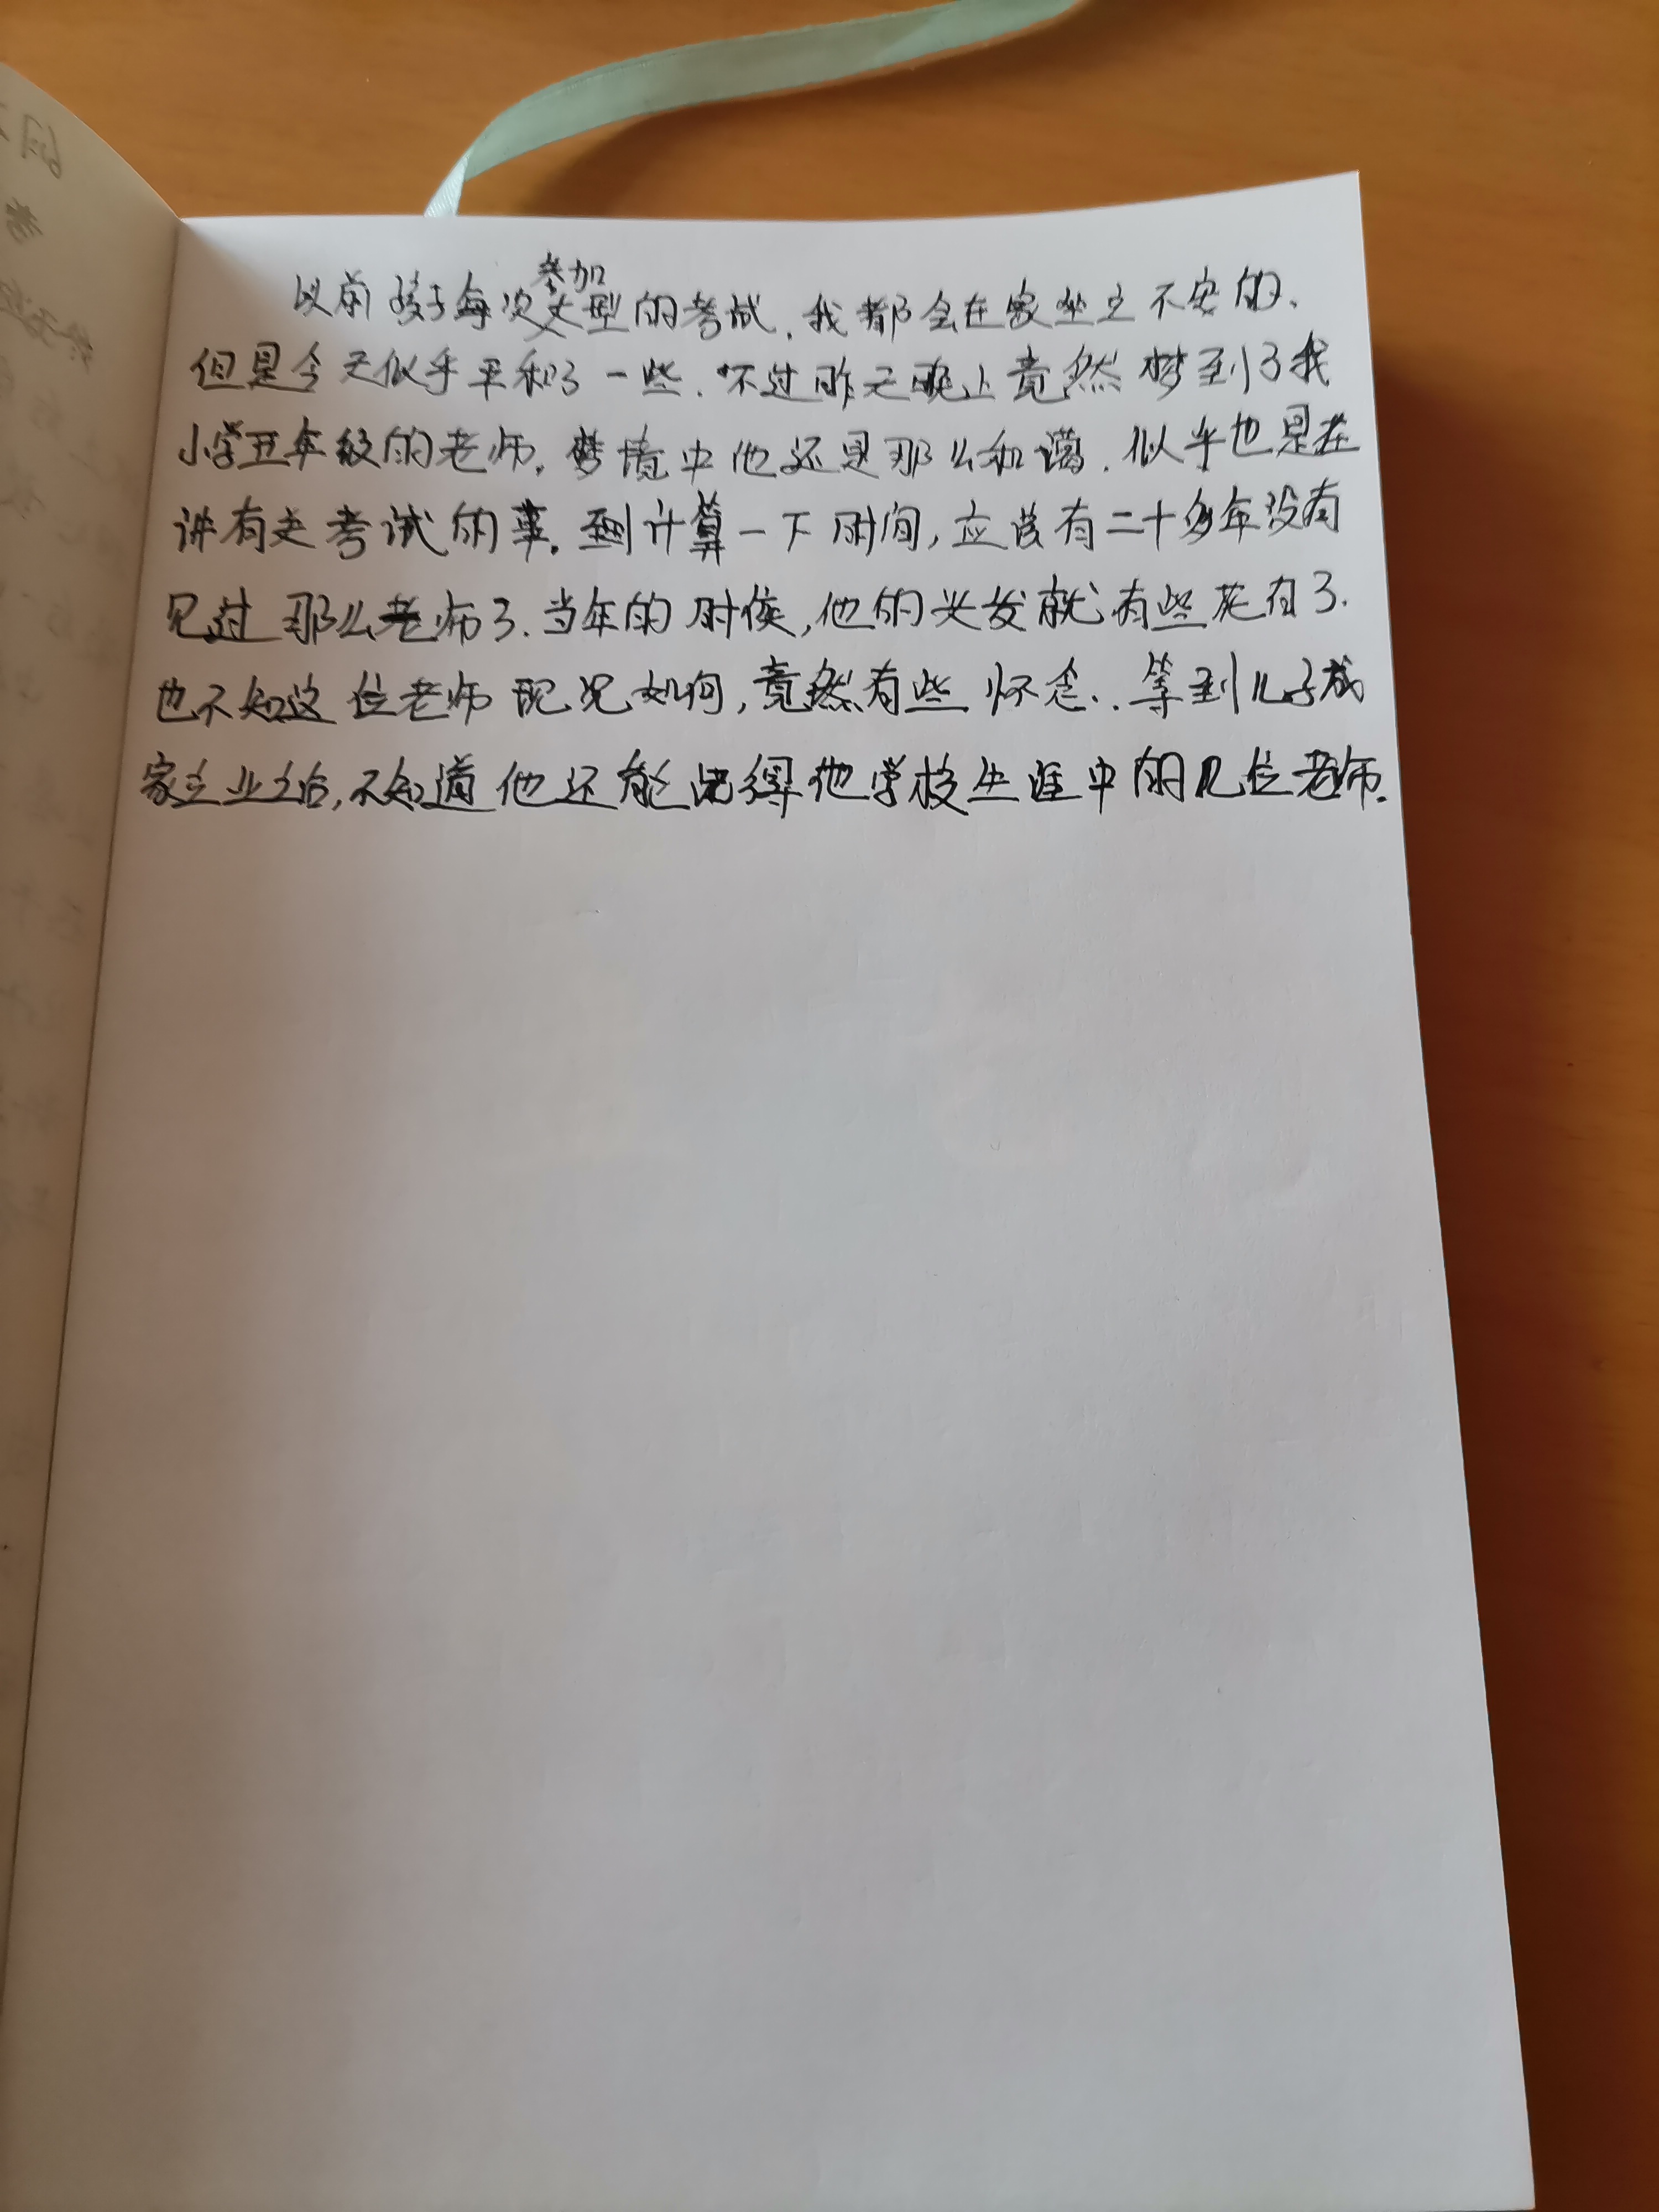 以前孩子每次参加大型的考试，我都会在家坐立不安的，
但是今天似乎平和了一些．不过昨天晚上竟然梦到了我
小学五年级的老师，梦境中他还是那么和蔼．似乎也是在
讲有关考试的事．计算一下时间，应该有二十多年没有
见过那么老师了．当年的时候，他的头发就有些花白了．
也不知这位老师现况如何，竟然有些怀念．．等到儿子成
家立业之后，不知道他还能记得他学校生涯中的几位老师．